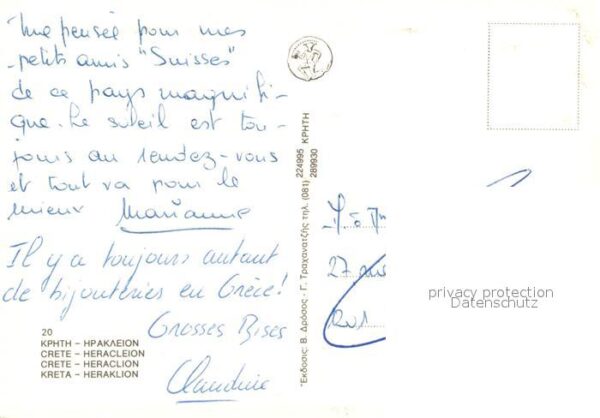 Une pensée pour mes
petits amis "Suisses"
de ce pays magnifi-
que. Le soleil est tou-
jours au rendez-vous
et tout va pour le
mieux Marianne
Il y a toujours autant
de bijouteries en Grèce!
Grosses Bises
Claudine
20
ΚΡΗΤΗ – ΗΡΑΚΛΕΙΟΝ
CRETE – HERACLEION
CRETE – HERACLION
KRETA – HERAKLION
Έκδοσις: Β. Δρόσος - Γ. Τραχανατζής τηλ. (081) 224995 ΚΡΗΤΗ
289930
27
privacy protection
Datenschutz